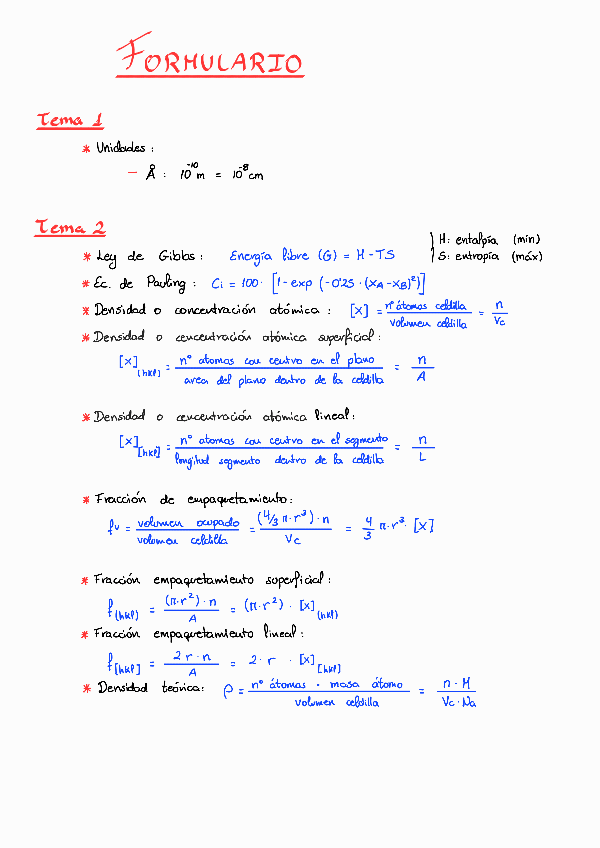 FORMULARIO
Tema 1
* Unidades:
— Å: 10^-10 m = 10^-8 cm
Tema 2
* Ley de Gibbs: Energía libre (G) = H - TS
H: entalpía (mín)
S: entropía (máx)
* Ec. de Pauling: Ci = 100 · [1 - exp (-0'25 · (XA - XB)²)]
* Densidad o concentración atómica: [x] = nº átomos celdilla / volumen celdilla = n / Vc
* Densidad o concentración atómica superficial:
[x](hkl) = nº atomos con centro en el plano / area del plano dentro de la celdilla = n / A
* Densidad o concentración atómica lineal:
[x][hkl] = nº atomos con centro en el segmento / longitud segmento dentro de la celdilla = n / L
* Fracción de empaquetamiento:
fv = volumen ocupado / volumen celdilla = (4/3 π·r³)·n / Vc = 4/3 π·r³· [x]
* Fracción empaquetamiento superficial:
f(hkl) = (π·r²)·n / A = (π·r²) · [x](hkl)
* Fracción empaquetamiento lineal:
f[hkl] = 2 r · n / A = 2 · r · [x][hkl]
* Densidad teórica: ρ = nº átomas · masa átomo / volumen celdilla = n · M / Vc · Na